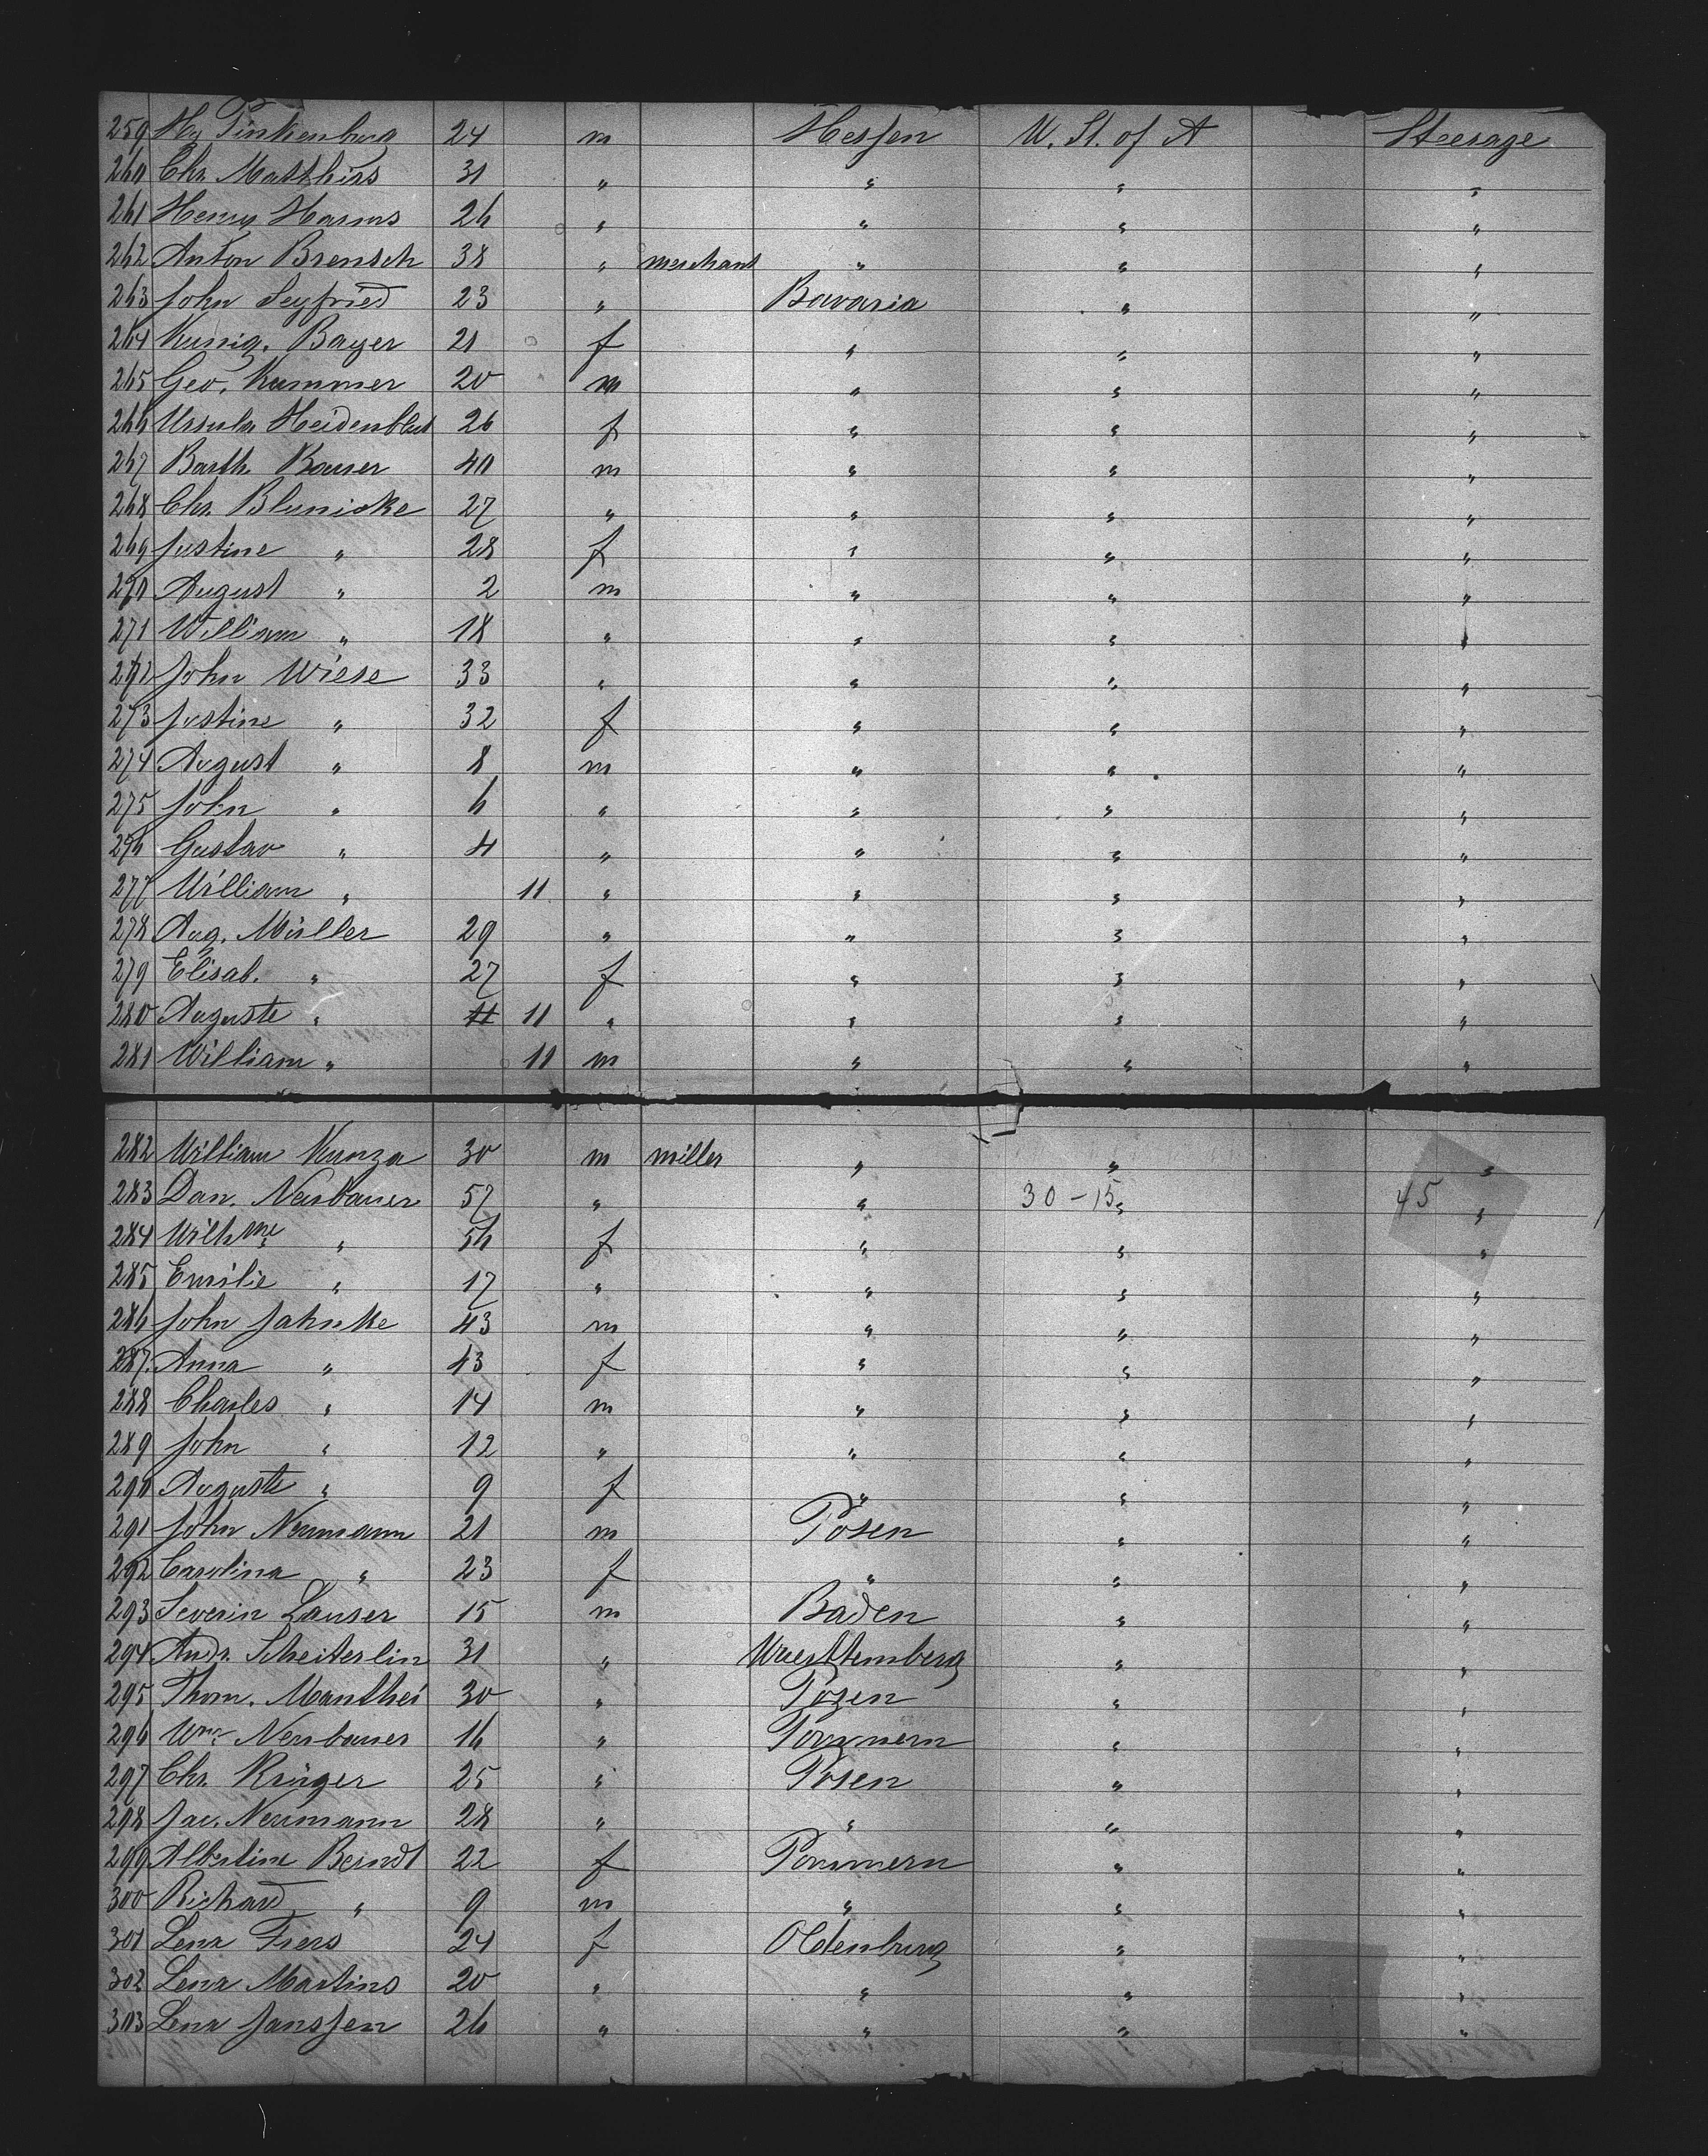 259 Hy Pinkenburg 24 m Hessen U. St. of A Steerage
260 Chr. Matthias 31 " " " "
261 Henry Harms 26 " " " "
262 Anton Brensch 38 " merchant " " "
263 John Seyfried 23 " Bavaria " "
264 Kunig. Bayer 21 f " " "
265 Geo. Kummer 20 m " " "
266 Ursula Heidenblut 26 f " " "
267 Barth. Bauer 40 m " " "
268 Chr. Blunicke 27 " " " "
269 Justine " 28 f " " "
270 August " 2 m " " "
271 William " 18 " " " "
272 John Wiese 33 " " " "
273 Justine " 32 f " " "
274 August " 8 m " " "
275 John " 6 " " " "
276 Gustav " 4 " " " "
277 William " 11 " " " "
278 Aug. Müller 29 " " " "
279 Elisab. " 27 f " " "
280 Auguste " 11 11 " " " "
281 William " 11 m " " "
282 William Kunza 30 m miller " " "
283 Dan. Neubauer 57 " " 30-15 " 45 "
284 Wilhme " 56 f " " "
285 Emilie " 17 " " " "
286 John Jahnke 43 m " " "
287. Anna " 43 f " " "
288 Charles " 14 m " " "
289 John " 12 " " " "
290 Auguste " 9 f " " "
291 John Neumann 21 m Posen " "
292 Carolina " 23 f " " "
293 Severin Lauser 15 m Baden " "
294 Andr. Scheiterlin 31 " Wuerttemberg " "
295 Thom. Manthei 30 " Posen " "
296 Wm. Neubauer 16 " Pommern " "
297 Chr. Krüger 25 " Posen " "
298 Jac. Neumann 28 " " " "
299 Albertine Berndt 22 f Pommern " "
300 Richard " 9 m " " "
301 Lena Fiers 24 f Oldenburg " "
302 Lena Martins 20 " " " "
303 Lena Janssen 26 " " " "